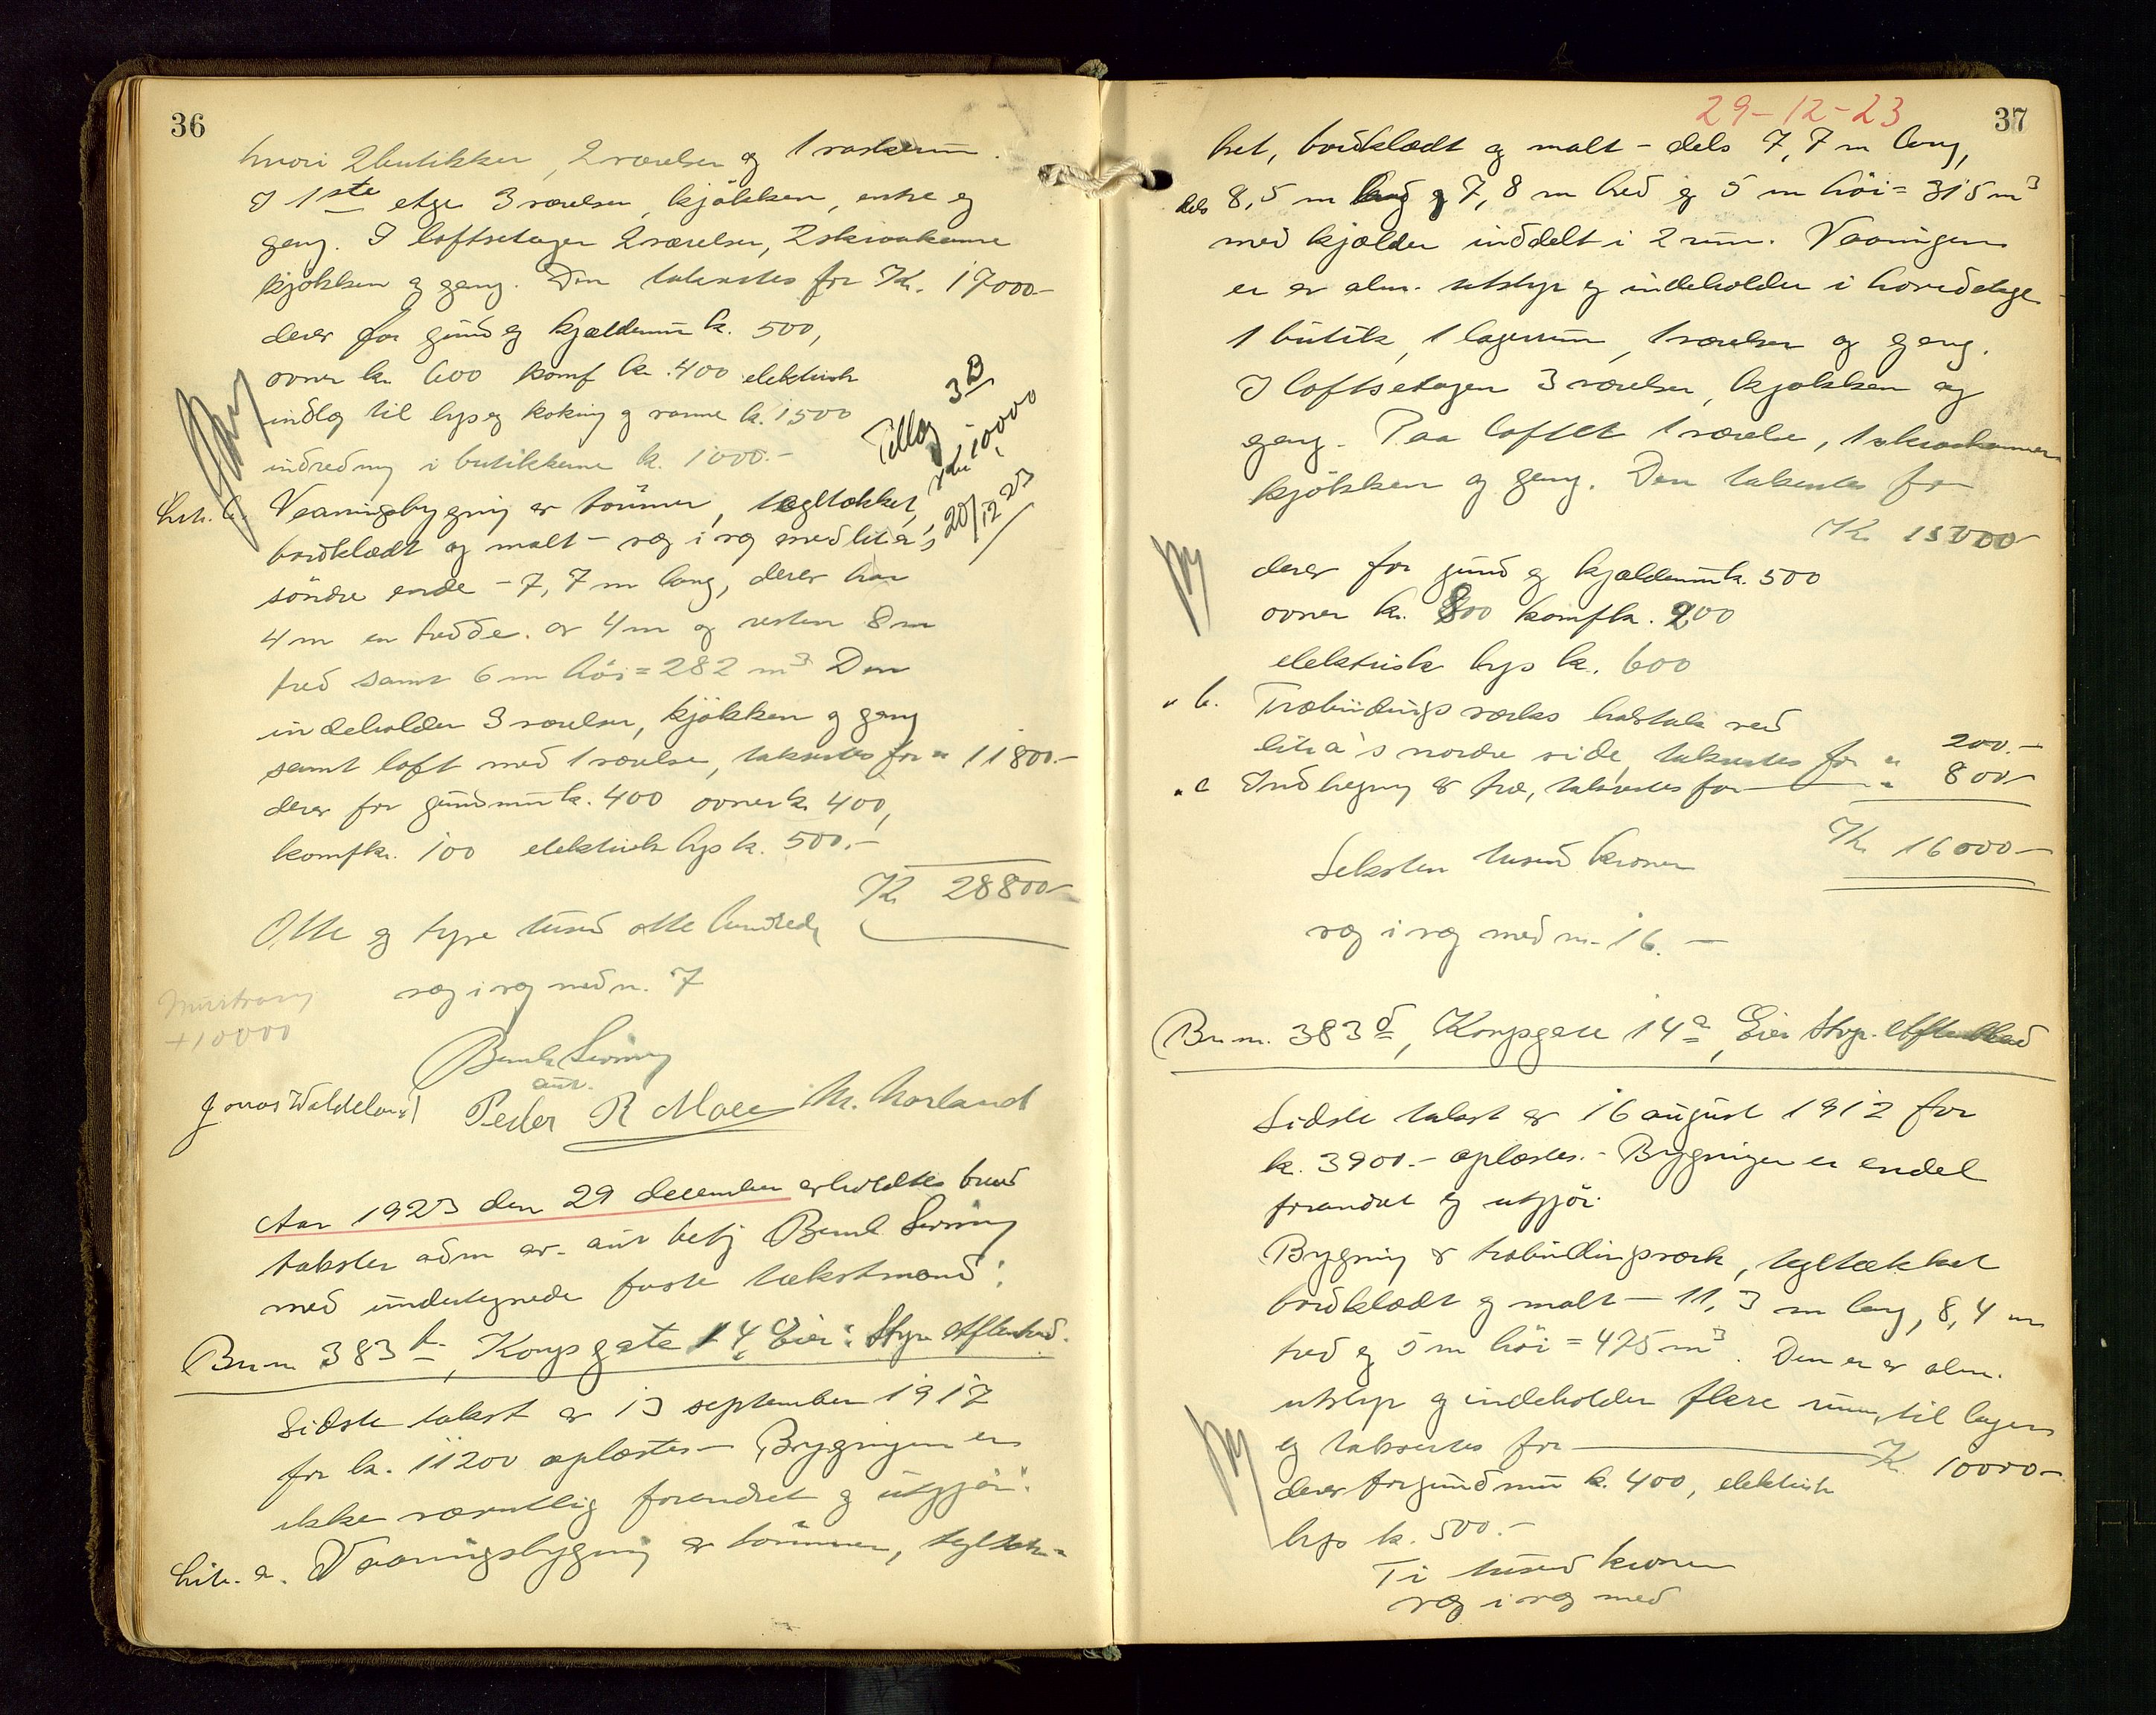 36
hvori 2 butikker, 2 værelser og 1 vaskerum.
I 1ste etge 3 værelser, kjøkken, entre og
gang. I loftsetagen 2 værelser, 2 skraakamre
kjøkken og gang. Den takseres for Kr. 17000-
derav for grund og kjældermur kr. 500,
ovner kr. 600 komf kr. 400 elektrisk
indlæg til lys og koking og varme kr. 1500
indredning i butikkerne kr. 1000.-
Tillæg 3 B
10000
20/12 23
Litr. b. Vaaningsbygning av tømmer, tegltækket,
bordklædt og malt - væg i væg med litr a's
söndre ende - 7,7 m lang, derav har
4 m en bredde av 4 m og resten 8 m
bred samt 6 m höi = 282 m3 Den
indeholder 3 værelser, kjökken og gang
samt loft med 1 værelse, takseres for " 11800.-
derav for grundmur kr. 400 ovner kr 400,
komf kr. 100 elektrisk lys kr. 500.-
Kr 28800-
Otte og tyve tusend otte hundrede
væg i væg med nr. 7
Murtvang
+10000
Bernh Servning
aut.
Jonas Waldeland Peder R Moe M. Norland
Aar 1923 den 29 december avholdtes brand
takster adm av aut betj Bernh Servning
med undertegnede faste takstmænd:
Br nr 383 b, Kongsgate 14 c Eier: Stvgr Aftenblad.
Sidste takst av 13 september 1917
for kr. 11200 oplæstes - Bygningen er
ikke væsentlig forandret og utgjör:
Litr. a. Vaaningsbygning av tömmer, tegltæk-
29-12-23
37
ket, bordklædt og malt - dels 7,7 m lang,
dels 8,5 m lang og 7,8 m bred og 5 m höi = 315 m3
med kjælder inddelt i 2 rum. Vaaningen
er av alm. utstyr og indeholder i hovedetage
1 butik, 1 lagerrum, 1 værelse og gang.
I loftsetagen 3 værelser, kjøkken og
gang. Paa loftet 1 værelse, 1 skraakammer
kjökken og gang. Den takseres for
Kr 15000-
derav for grund og kjældermur kr. 500
ovner kr. 800 komf kr. 200
elektrisk lys kr. 600
" b. Træbindingsverks halvtak ved
litr a's nordre side, takseres for " 200.-
" c Indhegning av træ, takseres for " 800-
Kr 16000-
Seksten tusend kroner
væg i væg med nr. 16. -
Br nr. 383 d, Kongsgate 14 a, Eier Stvgr. Aftenblad
Sidste takst av 16 august 1912 for
kr. 3900.- oplæstes. - Bygningen er endel
forandret og utgjör:
Bygning av træbindingsverk, tegltækket
bordklædt og malt - 11,3 m lang, 8,4 m
bred og 5 m höi = 475 m3. Den er av alm.
utstyr og indeholder flere rum, til lager
og takseres for Kr 10000-
derav for grundmur kr. 400, elektrisk
lys kr. 500.-
Ti tusend kroner
væg i væg med